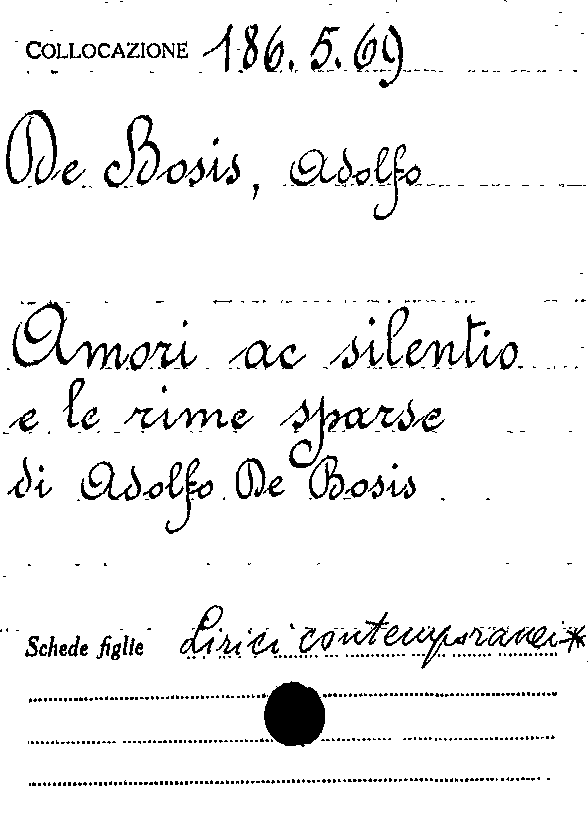 COLLOCAZIONE 186.5.69
De Bosis, Adolfo
Amori ac silentio
e le rime sparse
di Adolfo De Bosis
Schede figlie Lirici contemporanei*